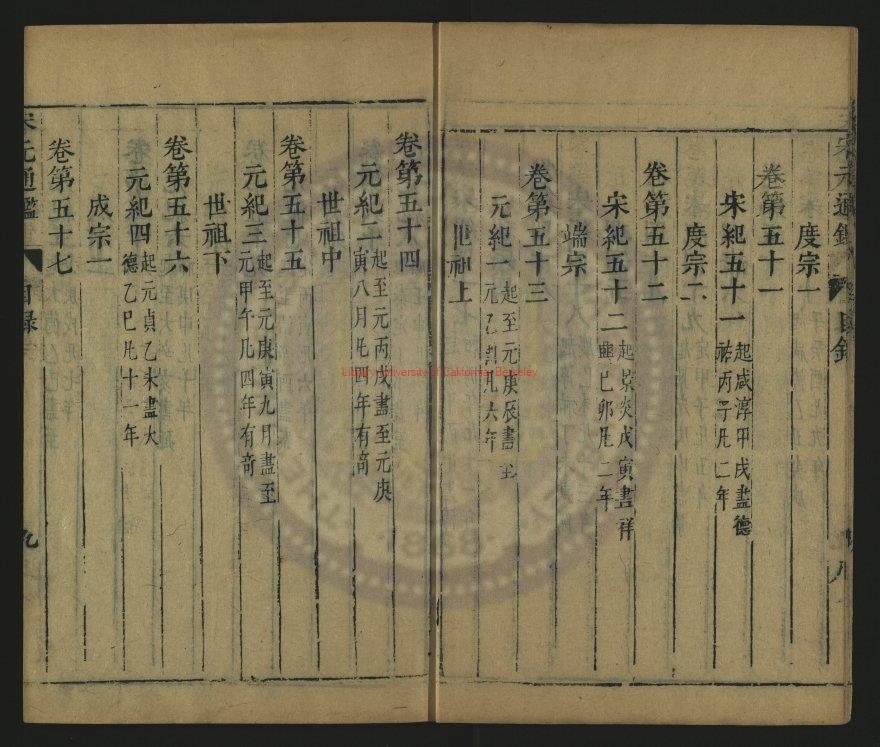 宋元通鑑 目錄 八
度宗一
卷第五十一
宋紀五十一 起咸淳甲戌盡德祐丙子凡二年
度宗二
卷第五十二
宋紀五十二 起景炎戊寅盡祥興巳卯凡二年
端宗
卷第五十三
元紀一 起至元庚辰盡至元乙丑凡六年
世祖上
卷第五十四
元紀二 起至元丙戌盡至元庚寅八月凡四年有奇
世祖中
卷第五十五
元紀三 起至元庚寅九月盡至元甲午凡四年有奇
世祖下
卷第五十六
元紀四 起元貞乙未盡大德乙巳凡十一年
成宗一
卷第五十七
宋元通鑑 目錄 九
Library University of California, Berkeley